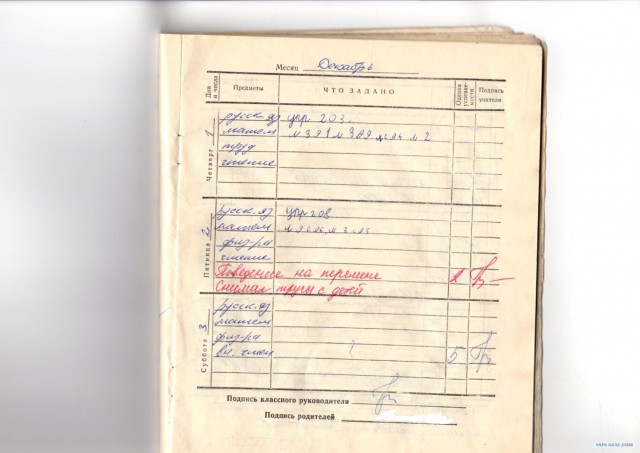 Месяц Декабрь
Дни и числа Предметы ЧТО ЗАДАНО Оценка успеваемости Подпись учителя
Четверг 1
русск. яз упр 203.
матем
труд
чтение
Пятница 2
Русск. яз упр
матем
физ-ра
чтение
Поведение на перемене 2
Снимал трусы с детей
Суббота 3
Русск. яз
матем
физ-ра
вн. чтен 5
Подпись классного руководителя
Подпись родителей
YAPLAKAL.COM